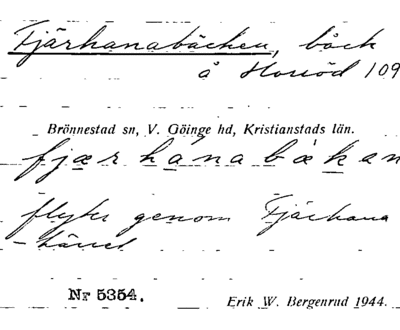 Fjärhanabäcken, bäck
å Horröd 109
Brönnestad sn, V. Göinge hd, Kristianstads län.
fjærhánabäkan
flyter genom Fjärhana
-kärret
Nr 5354. Erik W. Bergenrud 1944.